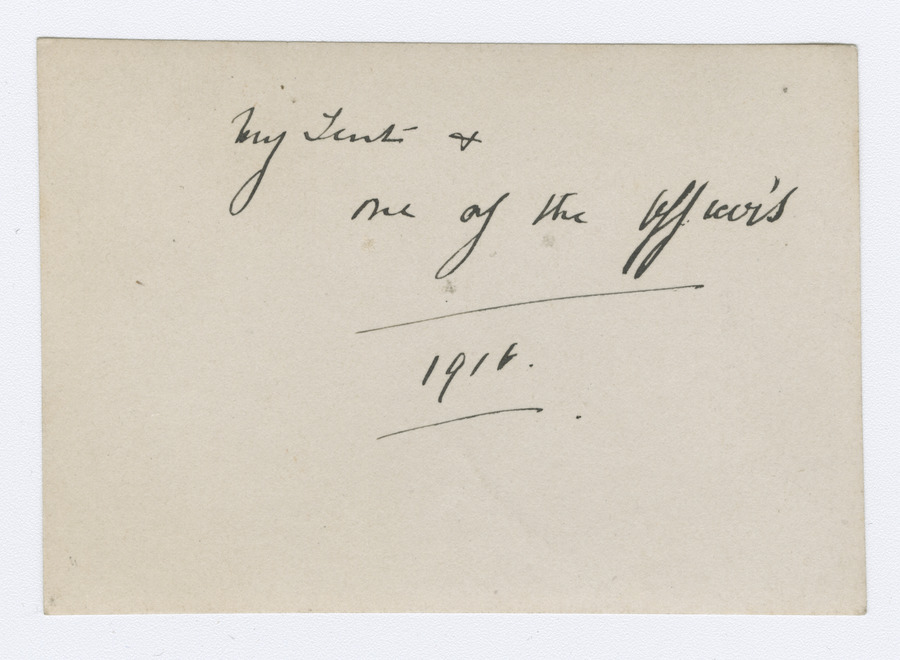 My Tent &
one of the Officer's
1916.